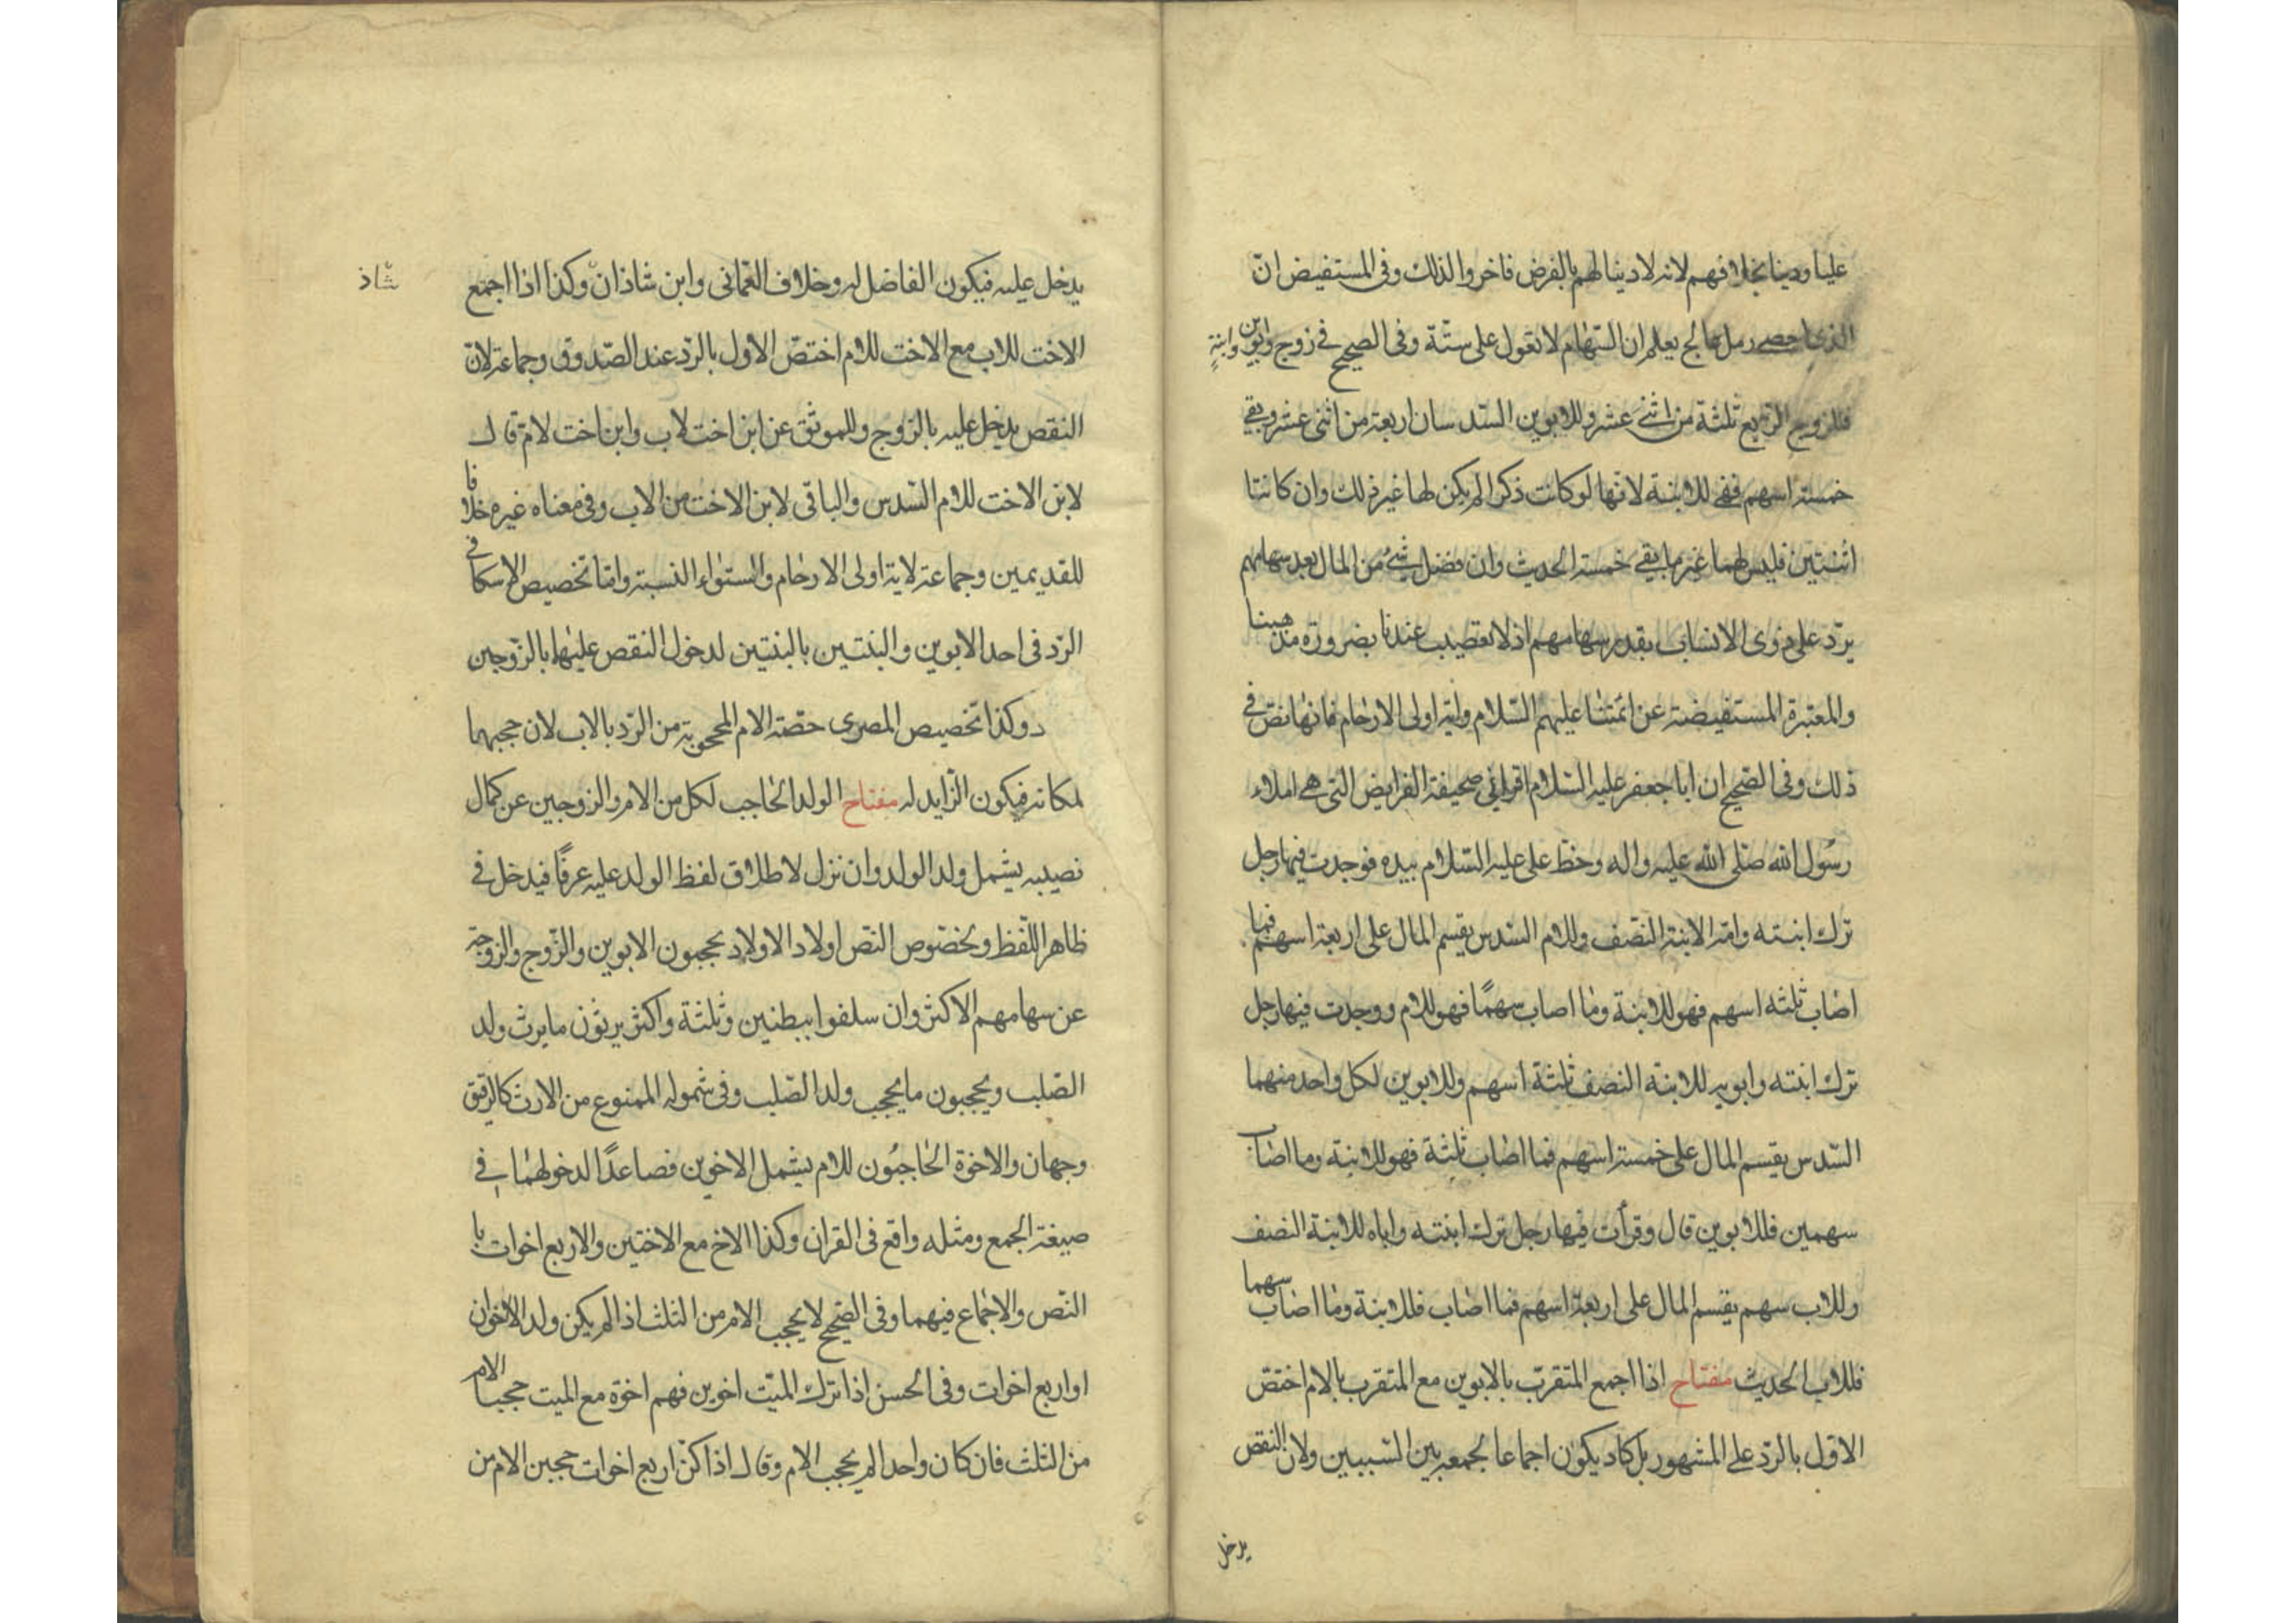 علينا وديننا بخلافهم لانه لا دينا لهم بالفرض فاخروا لذلك وفى المستفيض انّ
الذى احصى رمل عالج يعلم ان السّهام لا تعول على ستّة وفى الصحيح فى زوج وابوين وابنةٍ
فللزوج الربع ثلثة من اثنى عشر وللابوين السّدسان اربعة من اثنى عشر وبقى
خمسة اسهم فهى للابنة لانّها لو كانت ذكرا لم يكن لها غير ذلك وان كانتا
اثنتين فليس لهما غير ما بقى خمسة الحديث وان فضل شئ من المال بعد سهامهم
يردّ على ذوى الانساب بقدر سهامهم اذ لا تعصيب عندنا بضرورة مذهبنا
والمعتبرة المستفيضة عن ائمّتنا عليهم السّلام واية اولى الارحام فانها نصّ فى
ذلك وفى الصّحيح ان ابا جعفر عليه السّلام اقرانى صحيفة الفرايض التى هى املاء
رسُول الله صلّى الله عليه واله وخط على عليه السّلام بيده فوجدت فيها رجل
ترك ابنته وامّه الابنة النصّف وللام السّدس يقسم المال على اربعة اسهم فما
اصاب ثلثه اسهم فهو للابنة وما اصاب سهمًا فهو للام ووجدت فيها رجل
ترك ابنته وابويه للابنة النصف ثلثة اسهم وللابوين لكل واحد منهما
السّدس يقسم المال على خمسة اسهم فما اصاب ثلثة فهو للابنة وما اصاب
سهمين فللابوين قال وقرأت فيها رجل ترك ابنته واباه للابنة النصف
وللاب سهم يقسم المال على اربعة اسهم فما اصاب فللابنة وما اصاب سهما
فللاب الحديث مفتاح اذا اجمع المتقرّب بالابوين مع المتقرب بالام اختصّ
الاوّل بالردّ على المشهور بل كاد يكون اجماعا لجمعه بين السّببين ولان النقص
يدخل
يدخل عليه فيكون الفاضل له وخلاف العمّانى وابن شاذانّ وكذا اذا اجمع
شّاذ
الاخت للاب مع الاخت للام اختصّ الاول بالردّ عند الصّدوق وجماعة لانّ
النقص يدخل عليه بالزّوج وللموثق عن ابن اخت لاب وابن اخت لام قال
لابن الاخت للام السّدس والباقى لابن الاخت من الاب وفى معناه غيره خلافا
للقديمين وجماعة لاية اولى الارحام والستواء النسبة وامّا تخصيص الاسكافى
الرّد فى احد الابوين والبنتين بالبنتين لدخول النقص عليها بالزّوجين
دو كذا تخصيص المصرى حصّة الام المحجوبة من الرّد بالاب لان حجبهما
لمكانه فيكون الزّايد له مفتاح الولد الحاجب لكل من الام والزوجين عن كمال
نصيبه يشمل ولد الولد وان نزل لاطلاق لفظ الولد عليه عرفًا فيدخل فى
ظاهر اللّفظ وبخصوص النصّ اولاد الاولاد يحجبون الابوين والزّوج والزوجة
عن سهامهم الاكثر وان سلفوا ببطنين وثلثة واكثر يرثون ما يرث ولد
الصّلب ويحجبون ما يحجب ولد الصّلب وفى شموله الممنوع من الارث كالرّق
وجهان والاخوة الحاجبُون للام يشمل الاخوين فصاعدًا لدخولهما فى
صيغة الجمع ومثله واقع فى القران وكذا الاخ مع الاختين والاربع اخوات با
النّص والاجماع فيهما وفى الصّحيح لا يحجب الام من الثلث اذا لم يكن ولد الا اخوان
او اربع اخوات وفى الحسن اذا ترك الميّت اخوين فهم اخوة مع الميت حجبا الام
من الثلث فان كان واحدا لم يحجب الام وقال اذا كنّ اربع اخوات حجبن الام من